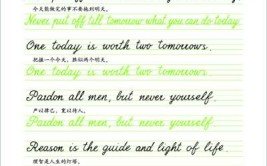 今天能做完的事不要拖到明天。
Never put off till tomorrow what you can do today.
One today is worth two tomorrows.
把握一个今天，胜似两个明天。
One today is worth two tomorrows.
Pardon all men, but never yourself.
严以律己，宽以待人。
Pardon all men, but never yourself.
Reason is the guide and light of life.
理智是人生的灯塔。